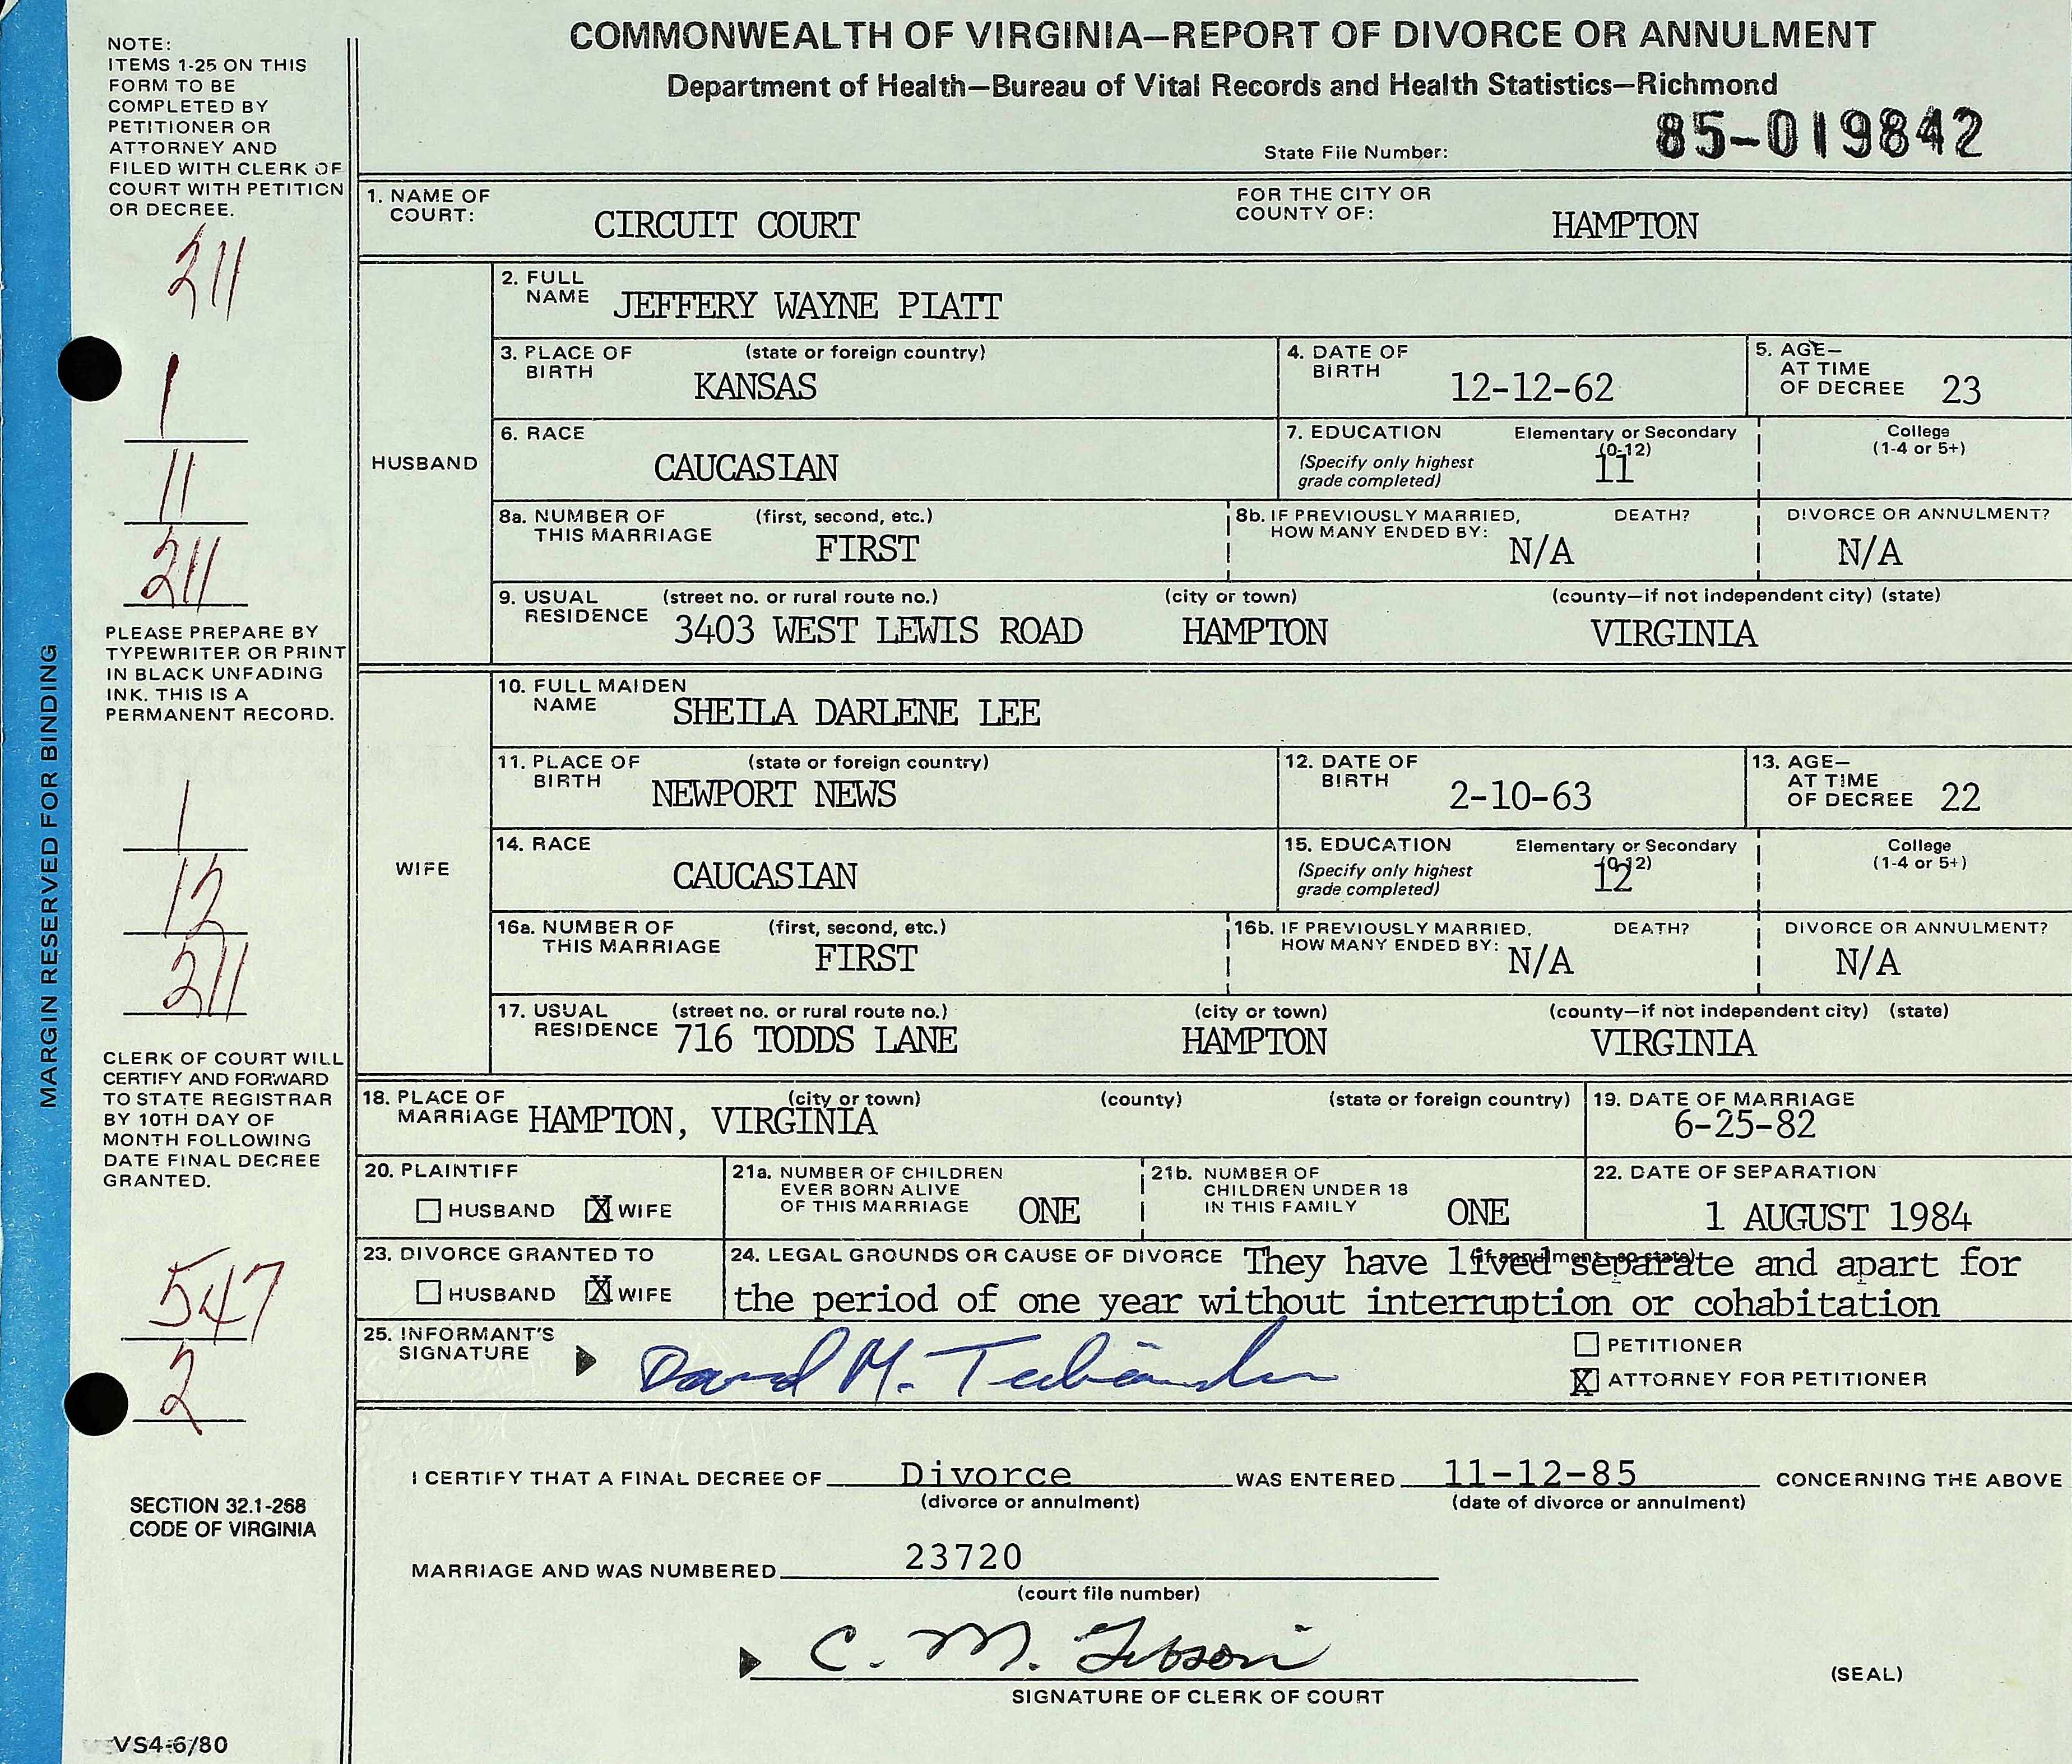 COMMONWEALTH OF VIRGINIA—REPORT OF DIVORCE OR ANNULMENT
Department of Health—Bureau of Vital Records and Health Statistics—Richmond
State File Number: 85-019842
NOTE:
ITEMS 1-25 ON THIS
FORM TO BE
COMPLETED BY
PETITIONER OR
ATTORNEY AND
FILED WITH CLERK OF
COURT WITH PETITION
OR DECREE.
211
1
11
211
PLEASE PREPARE BY
TYPEWRITER OR PRINT
IN BLACK UNFADING
INK. THIS IS A
PERMANENT RECORD.
1
12
211
CLERK OF COURT WILL
CERTIFY AND FORWARD
TO STATE REGISTRAR
BY 10TH DAY OF
MONTH FOLLOWING
DATE FINAL DECREE
GRANTED.
547
2
SECTION 32.1-268
CODE OF VIRGINIA
VS4-6/80
MARGIN RESERVED FOR BINDING
1. NAME OF COURT: CIRCUIT COURT FOR THE CITY OR COUNTY OF: HAMPTON
HUSBAND
2. FULL NAME JEFFERY WAYNE PIATT
3. PLACE OF BIRTH (state or foreign country) KANSAS 4. DATE OF BIRTH 12-12-62 5. AGE— AT TIME OF DECREE 23
6. RACE CAUCASIAN 7. EDUCATION (Specify only highest grade completed) Elementary or Secondary (0-12) 11 College (1-4 or 5+)
8a. NUMBER OF THIS MARRIAGE (first, second, etc.) FIRST 8b. IF PREVIOUSLY MARRIED, HOW MANY ENDED BY: DEATH? N/A DIVORCE OR ANNULMENT? N/A
9. USUAL RESIDENCE (street no. or rural route no.) (city or town) (county—if not independent city) (state)
3403 WEST LEWIS ROAD HAMPTON VIRGINIA
WIFE
10. FULL MAIDEN NAME SHEILA DARLENE LEE
11. PLACE OF BIRTH (state or foreign country) NEWPORT NEWS 12. DATE OF BIRTH 2-10-63 13. AGE— AT TIME OF DECREE 22
14. RACE CAUCASIAN 15. EDUCATION (Specify only highest grade completed) Elementary or Secondary (0-12) 12 College (1-4 or 5+)
16a. NUMBER OF THIS MARRIAGE (first, second, etc.) FIRST 16b. IF PREVIOUSLY MARRIED, HOW MANY ENDED BY: DEATH? N/A DIVORCE OR ANNULMENT? N/A
17. USUAL RESIDENCE (street no. or rural route no.) (city or town) (county—if not independent city) (state)
716 TODDS LANE HAMPTON VIRGINIA
18. PLACE OF MARRIAGE (city or town) (county) (state or foreign country) HAMPTON, VIRGINIA 19. DATE OF MARRIAGE 6-25-82
20. PLAINTIFF HUSBAND X WIFE 21a. NUMBER OF CHILDREN EVER BORN ALIVE OF THIS MARRIAGE ONE 21b. NUMBER OF CHILDREN UNDER 18 IN THIS FAMILY ONE 22. DATE OF SEPARATION 1 AUGUST 1984
23. DIVORCE GRANTED TO HUSBAND X WIFE 24. LEGAL GROUNDS OR CAUSE OF DIVORCE (if annulment—so state) They have lived separate and apart for
the period of one year without interruption or cohabitation
25. INFORMANT'S SIGNATURE David M. PETITIONER
X ATTORNEY FOR PETITIONER
I CERTIFY THAT A FINAL DECREE OF Divorce WAS ENTERED 11-12-85 CONCERNING THE ABOVE
(divorce or annulment) (date of divorce or annulment)
MARRIAGE AND WAS NUMBERED 23720
(court file number)
C. M. Gibson
SIGNATURE OF CLERK OF COURT (SEAL)